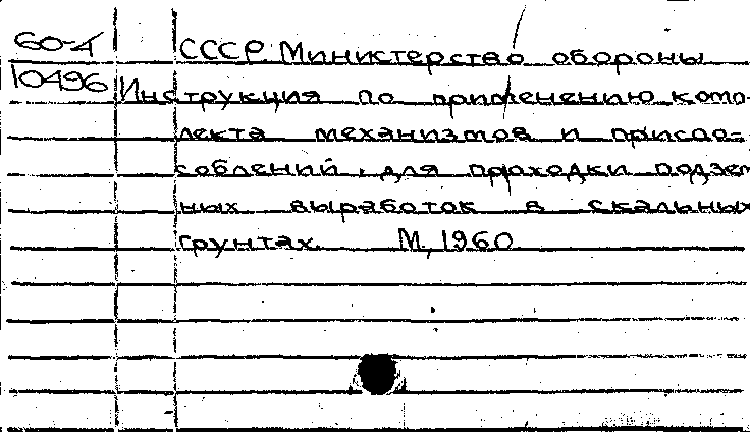 60-4 СССР. Министерство обороны
10496 Инструкция по применению комп-
лекта механизмов и приспо-
соблений для проходки подзем
ных выработок в скальных
грунтах. М, 1960